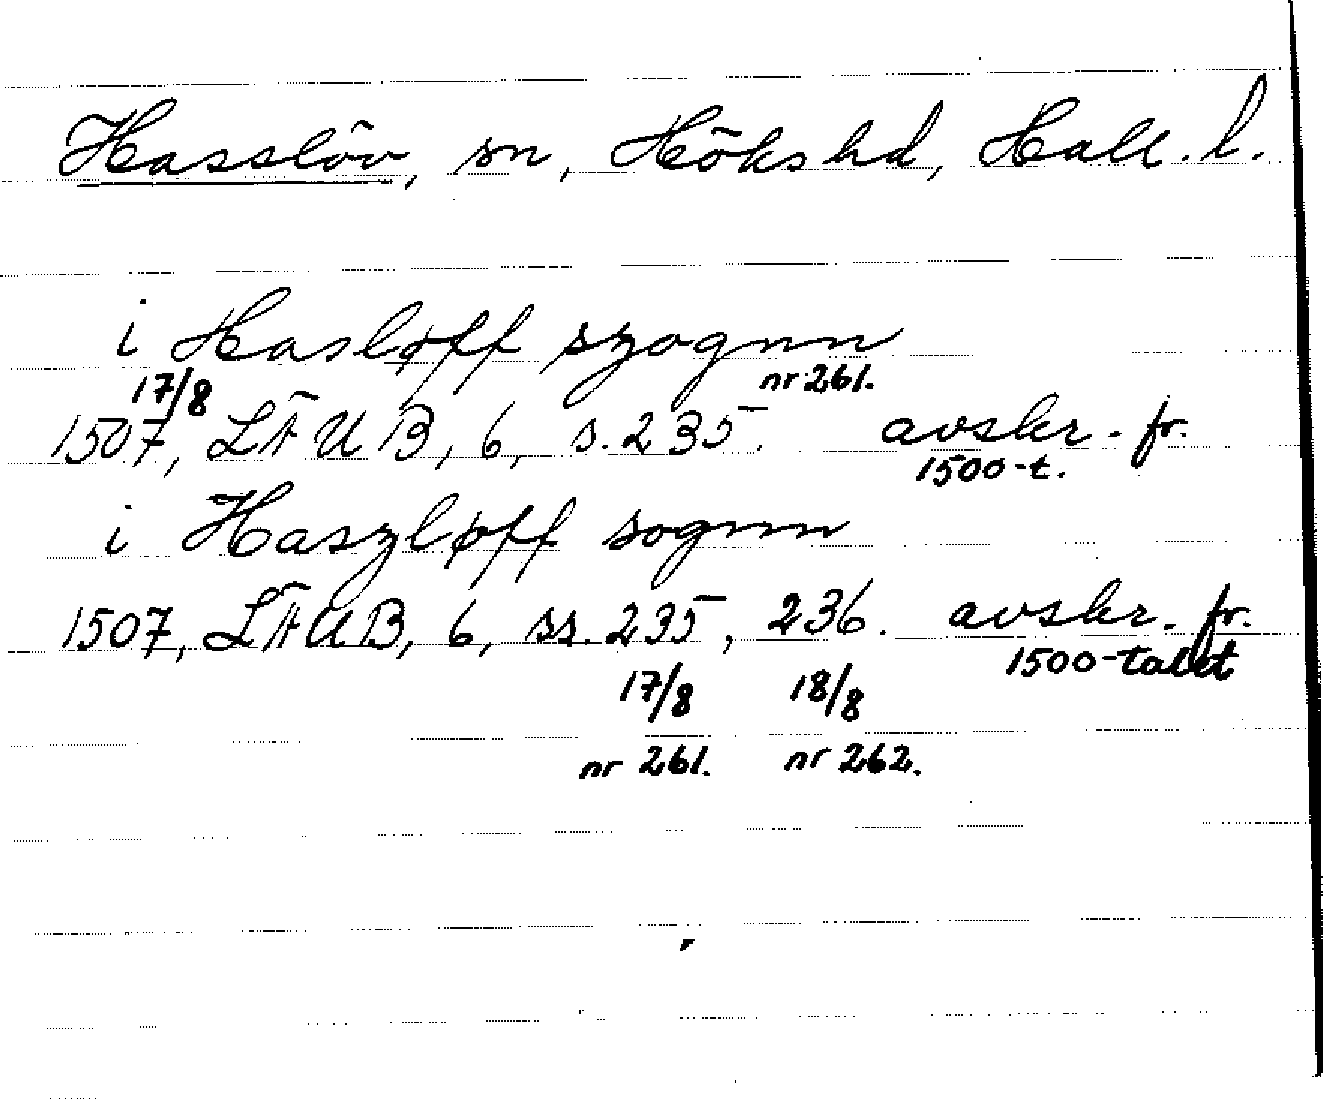 Hasslöv, sn, Höks hd, Hall. l.
i Hasløff szognn
17/8 nr 261.
1507, LÄUB, 6, s. 235. avskr. fr.
1500-t.
i Haszløff sognn
1507, LÄUB, 6, ss. 235, 236. avskr. fr.
1500-talet
17/8 18/8
nr 261. nr 262.